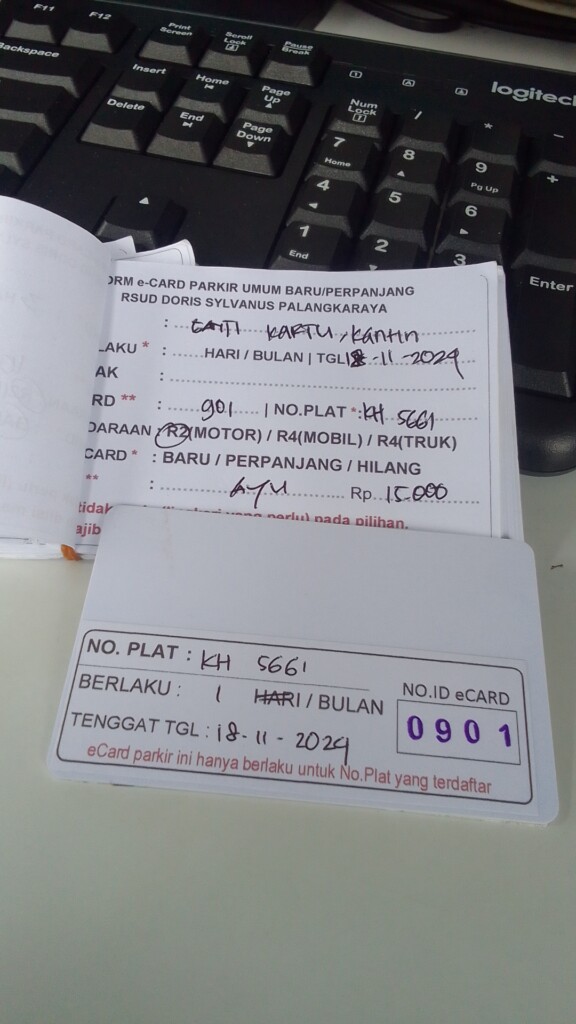 F11
F12
Print Screen
Scroll Lock
Pause Break
Backspace
Insert
Home
Page Up
Delete
End
Page Down
Num Lock
/
*
-
logitech
7 Home
8
9 Pg Up
+
4
5
6
1 End
2
3
Enter
ORM e-CARD PARKIR UMUM BARU/PERPANJANG
RSUD DORIS SYLVANUS PALANGKARAYA
: KARTU, Kantin
LAKU * : HARI / BULAN | TGL 18-11-2024
AK :
RD ** : 901 | NO.PLAT *: KH 5661
DARAAN : R2(MOTOR) / R4(MOBIL) / R4(TRUK)
CARD * : BARU / PERPANJANG / HILANG
** : Ayu Rp 15.000
tidak perlu) pada pilihan.
ajib
NO. PLAT : KH 5661
BERLAKU : 1 HARI / BULAN
NO.ID eCARD
TENGGAT TGL : 18-11-2024
0901
eCard parkir ini hanya berlaku untuk No.Plat yang terdaftar